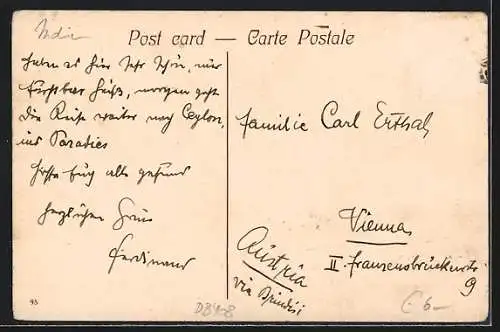 India
Post card — Carte Postale
haben es hier sehr schön, nur
furchtbar heiß, morgen geht
die Reise weiter nach Ceylon,
ins Paradies
hoffe Euch alle gesund
herzlichen Gruß
Ferdinand
Familie Carl Erthal
Vienna
II. Franzensbrückenstr
9
Austria
via Brindisi
93
6-